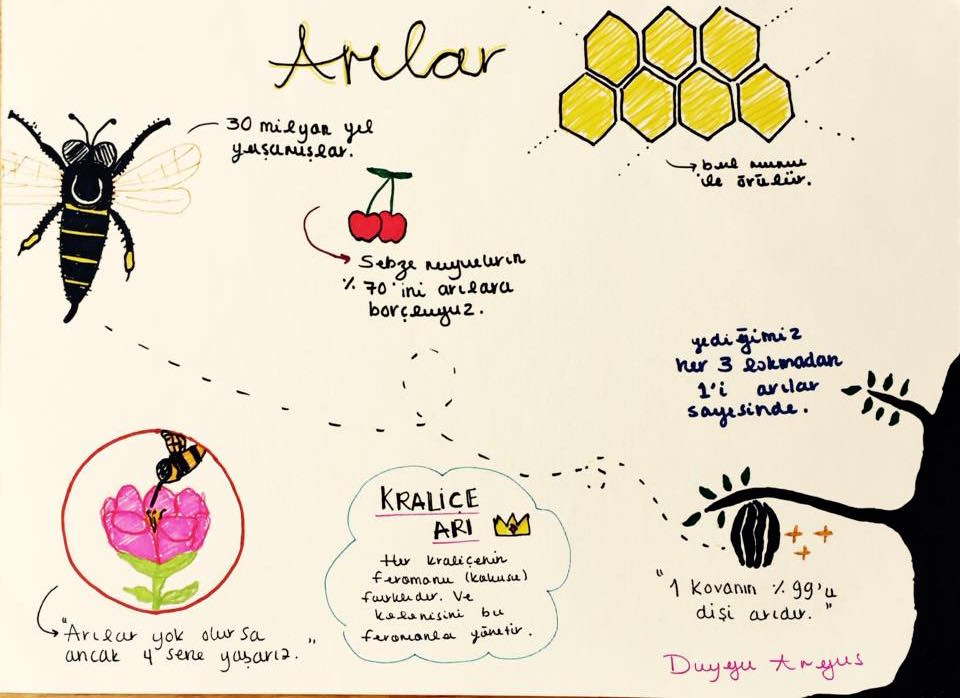 Arılar
30 milyon yıl
yaşamışlar.
bal mumu
ile örülür.
Sebze meyvelerin
% 70'ini arılara
borçluyuz.
yediğimiz
her 3 lokmadan
1'i arılar
sayesinde.
KRALİÇE
ARI
Her kraliçenin
feromonu (kokusu)
farklıdır. Ve
kolonisini bu
feromonla yönetir.
"1 Kovanın % 99'u
dişi arıdır."
"Arılar yok olursa
ancak 4 sene yaşarız."
Duygu